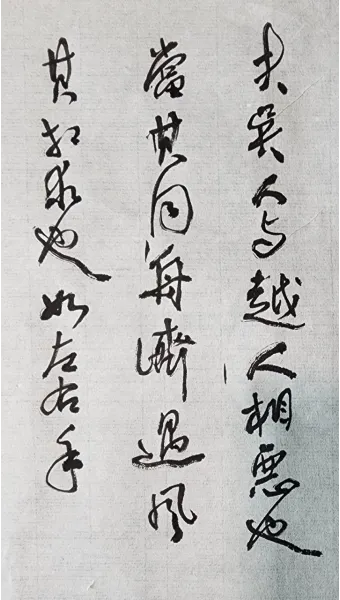 夫吴人与越人相恶也
當其同舟濟遇风
其相救也如左右手